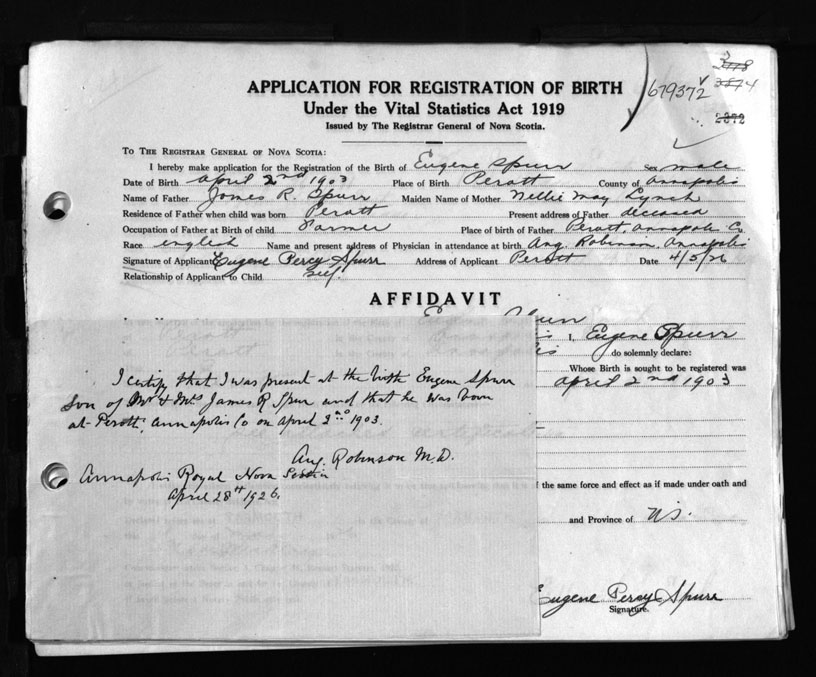 679372
APPLICATION FOR REGISTRATION OF BIRTH
Under the Vital Statistics Act 1919
Issued by The Registrar General of Nova Scotia.
TO THE REGISTRAR GENERAL OF NOVA SCOTIA:
I hereby make application for the Registration of the Birth of Eugene Spurr Sex male
Date of Birth April 2nd 1903 Place of Birth Perott County of Annapolis
Name of Father James R. Spurr Maiden Name of Mother Nellie May Lynch
Residence of Father when child was born Perott Present address of Father deceased
Occupation of Father at Birth of child Farmer Place of birth of Father Perott Annapolis Co.
Race english Name and present address of Physician in attendance at birth Aug. Robinson, Annapolis
Signature of Applicant Eugene Percy Spurr Address of Applicant Perott Date 4/5/26
Relationship of Applicant to Child self.
AFFIDAVIT
I, Eugene Spurr
do solemnly declare:
Whose Birth is sought to be registered was
April 2nd 1903
I certify that I was present at the birth Eugene Spurr
Son of Mr & Mrs James R Spurr and that he was born
at Perott, Annapolis Co on April 2nd 1903.
Aug. Robinson M.D.
Annapolis Royal Nova Scotia
April 28th 1926.
the same force and effect as if made under oath and
and Province of N.S.
Eugene Percy Spurr
Signature.